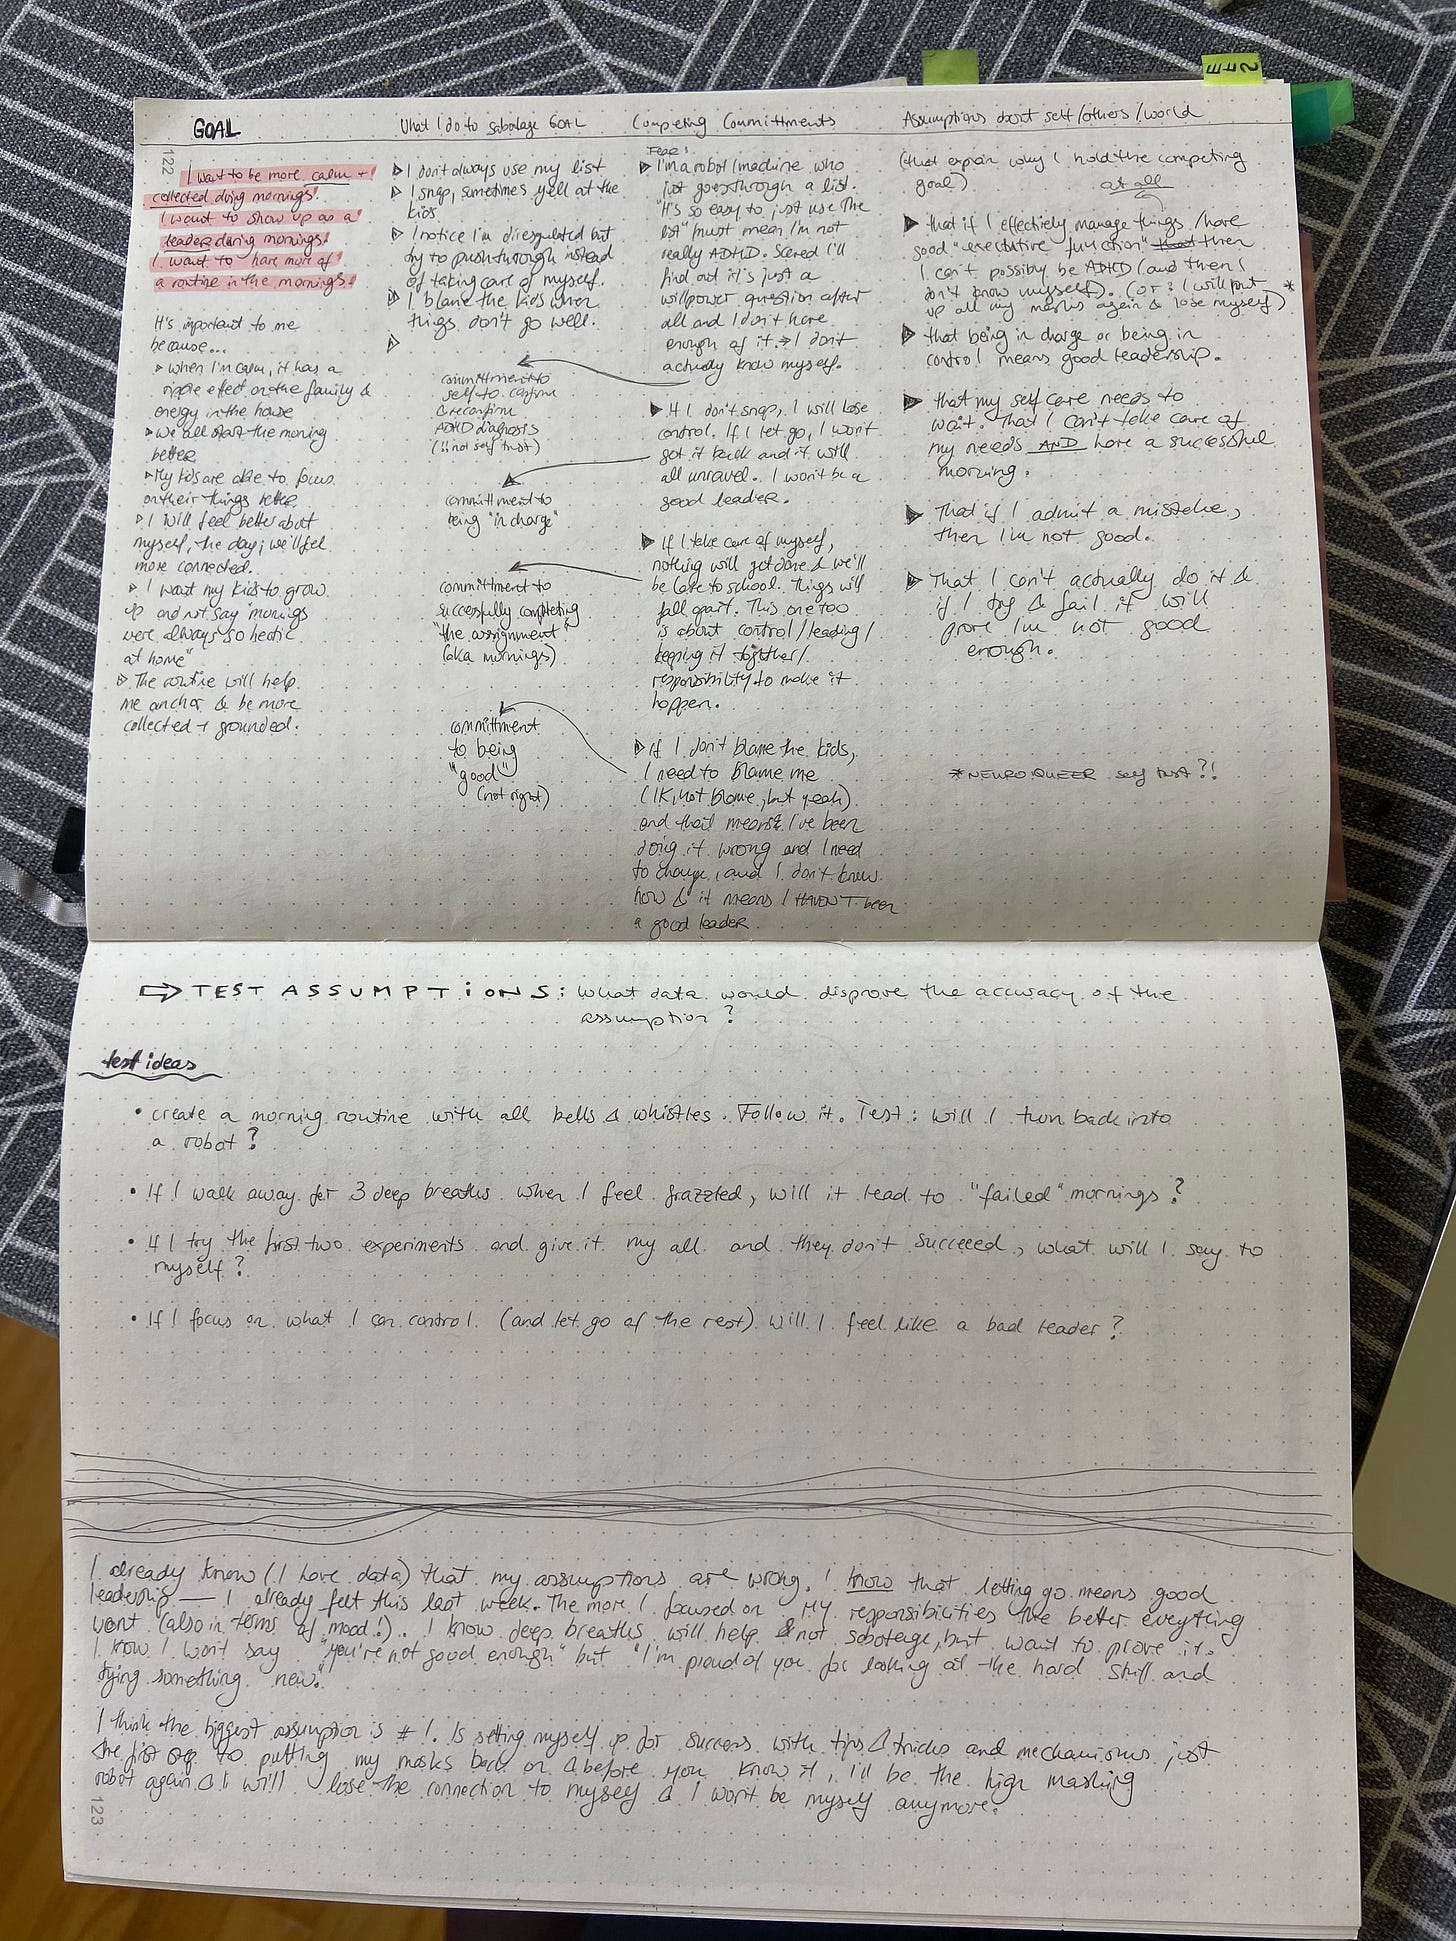 GOAL
I want to be more calm +
collected during mornings.
I want to show up as a
leader during mornings.
I want to have more of
a routine in the mornings.
It's important to me
because...
when I'm calm, it has a
ripple effect on the family &
energy in the house
we all start the morning
better
My kids are able to focus
on their things better
I will feel better about
myself, the day; we'll feel
more connected.
I want my kids to grow
up and not say "mornings
were always so hectic
at home"
The routine will help
me anchor & be more
collected + grounded.
122
What I do to sabotage GOAL
I don't always use my list
I snap, sometimes yell at the
kids
I notice I'm disregulated but
try to push through instead
of taking care of myself.
I blame the kids when
things don't go well.
commitment to
self to confirm
& reconfirm
ADHD diagnosis
(!! not self trust)
commitment to
being "in charge"
commitment to
successfully completing
"the assignment"
(aka mornings)
commitment
to being
"good"
(not right)
Competing Committments
Fear:
I'm a robot/machine who
just goes through a list.
"It's so easy to just use the
list" must mean I'm not
really ADHD. Scared I'll
find out it's just a
willpower question after
all and I don't have
enough of it → I don't
actually know myself.
If I don't snap, I will lose
control. If I let go, I won't
get it back and it will
all unravel. I won't be a
good leader.
If I take care of myself,
nothing will get done & we'll
be late to school. Things will
fall apart. This one too
is about control/leading/
keeping it together/
responsibility to make it
happen.
if I don't blame the kids,
I need to blame me
(IK, not blame, but yeah)
and that means I've been
doing it wrong and I need
to change, and I don't know
how & it means I HAVEN'T been
a good leader
Assumptions about self/others/world
(that explain why I hold the competing
goal)
at all
that if I effectively manage things/have
good "executive function" that then
I can't possibly be ADHD (and then I
don't know myself). (or: I will put *
up all my masks again & lose myself)
that being in charge or being in
control means good leadership.
that my self care needs to
wait. That I can't take care of
my needs AND have a successful
morning.
That if I admit a mistake,
then I'm not good.
That I can't actually do it &
if I try & fail it will
prove I'm not good
enough.
*NEUROQUEER self trust?!
⇨ TEST ASSUMPTIONS: What data would disprove the accuracy of the
assumption?
test ideas
• create a morning routine with all bells & whistles. Follow it. Test: Will I turn back into
a robot?
• If I walk away for 3 deep breaths when I feel frazzled, will it lead to "failed" mornings?
• If I try the first two experiments and give it my all and they don't succeed, what will I say to
myself?
• If I focus on what I can control (and let go of the rest) will I feel like a bad leader?
I already know (I have data) that my assumptions are wrong. I know that letting go means good
leadership — I already felt this last week. The more I focused on MY responsibilities the better everything
went (also in terms of mood!). I know deep breaths will help & not sabotage, but want to prove it.
I know I won't say "you're not good enough" but "I'm proud of you for looking at the hard stuff and
trying something new."
I think the biggest assumption is #1. Is setting myself up for success with tips & tricks and mechanisms just
the first step to putting my masks back on & before you know it, I'll be the high masking
robot again & I will lose the connection to myself & I won't be myself anymore.
123